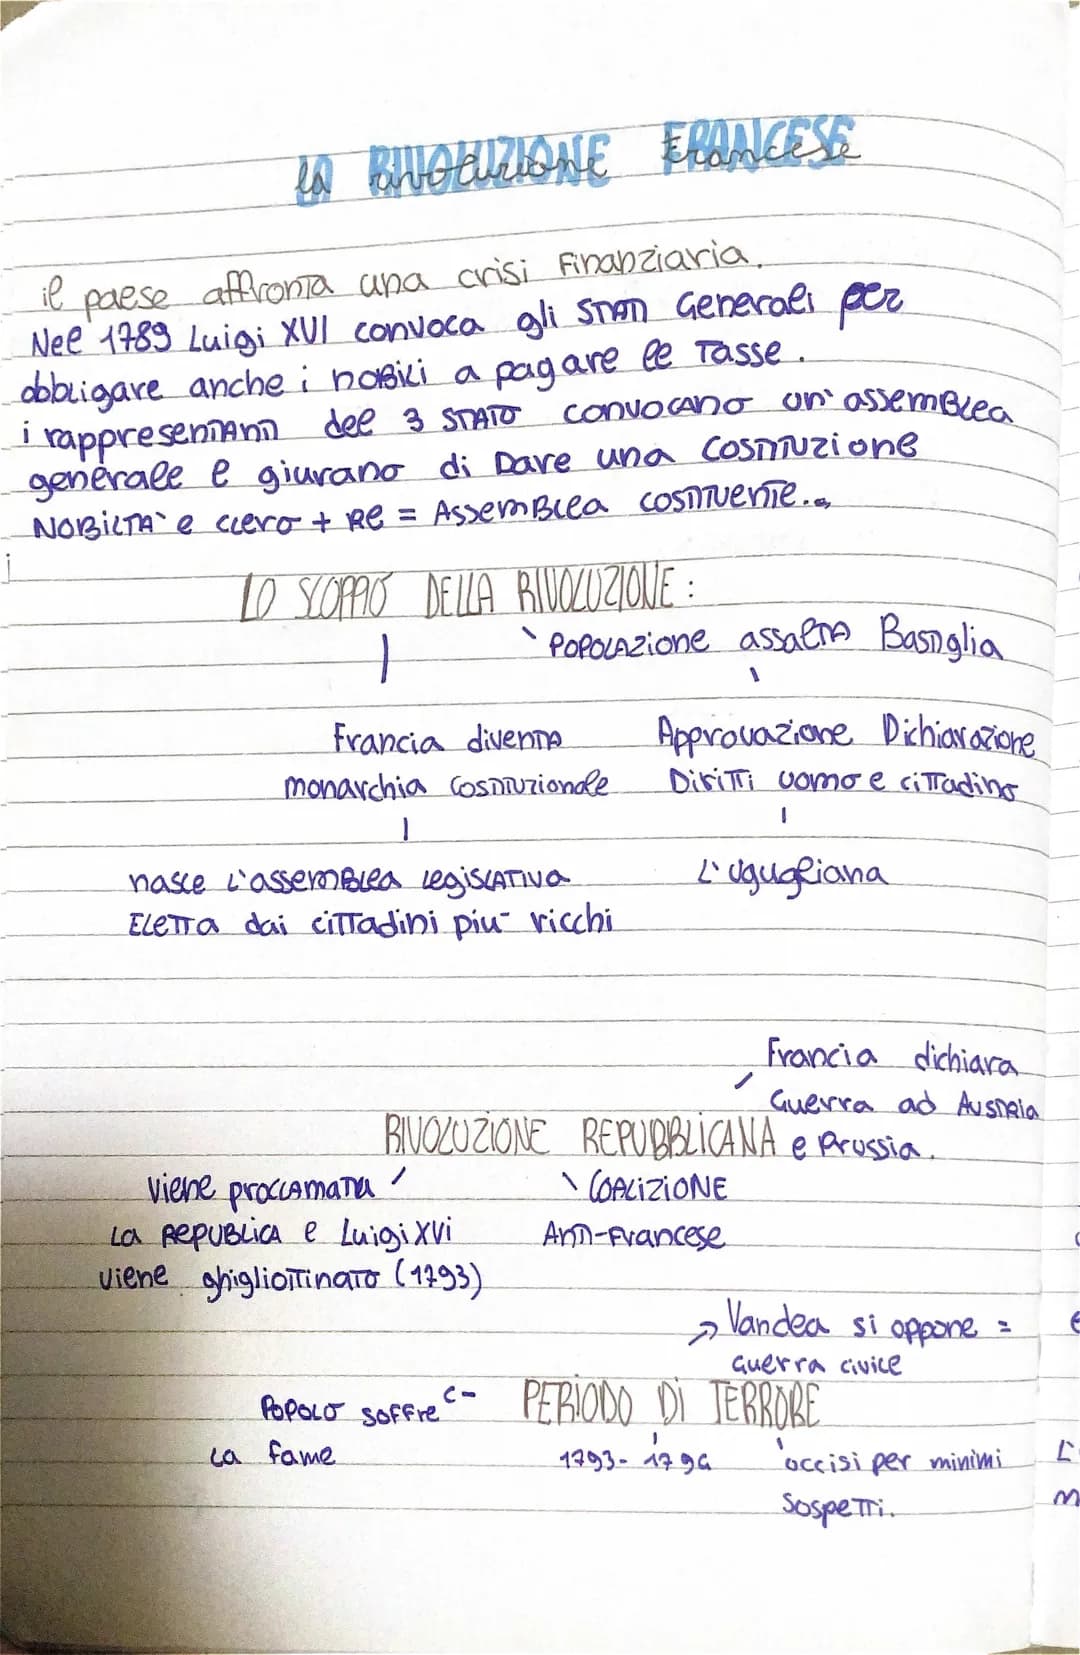 la RIVOLUZIONE FRANCESE
la rivoluzione francese
il paese affronta una crisi Finanziaria.
Nel 1789 Luigi XVI convoca gli STATI Generali per
obbligare anche i nobili a pagare le Tasse.
i rappresentanti del 3 STATO convocano un' assemblea
generale e giurano di Dare una COSTITUZIONE
NOBILTA` e clero + RE = Assemblea COSTITUENTE.
LO SCOPPIO DELLA RIVOLUZIONE:
POPOLAZIONE assalta Bastiglia
Francia diventa
monarchia Costituzionale
Approvazione Dichiarazione
Diritti uomo e cittadino
nasce l'assemblea legislativa
Eletta dai cittadini piu- ricchi
L'uguagliana
Francia dichiara
Guerra ad Austria
e Prussia.
RIVOLUZIONE REPUBBLICANA
viene proclamata
la REPUBLICA e Luigi XVi
viene ghigliottinato (1793)
COALIZIONE
Anti-Francese
Vandea si oppone =
Guerra civile
PERIODO Di TERRORE
Popolo soffre
la fame
1793-1794
occisi per minimi
Sospetti.